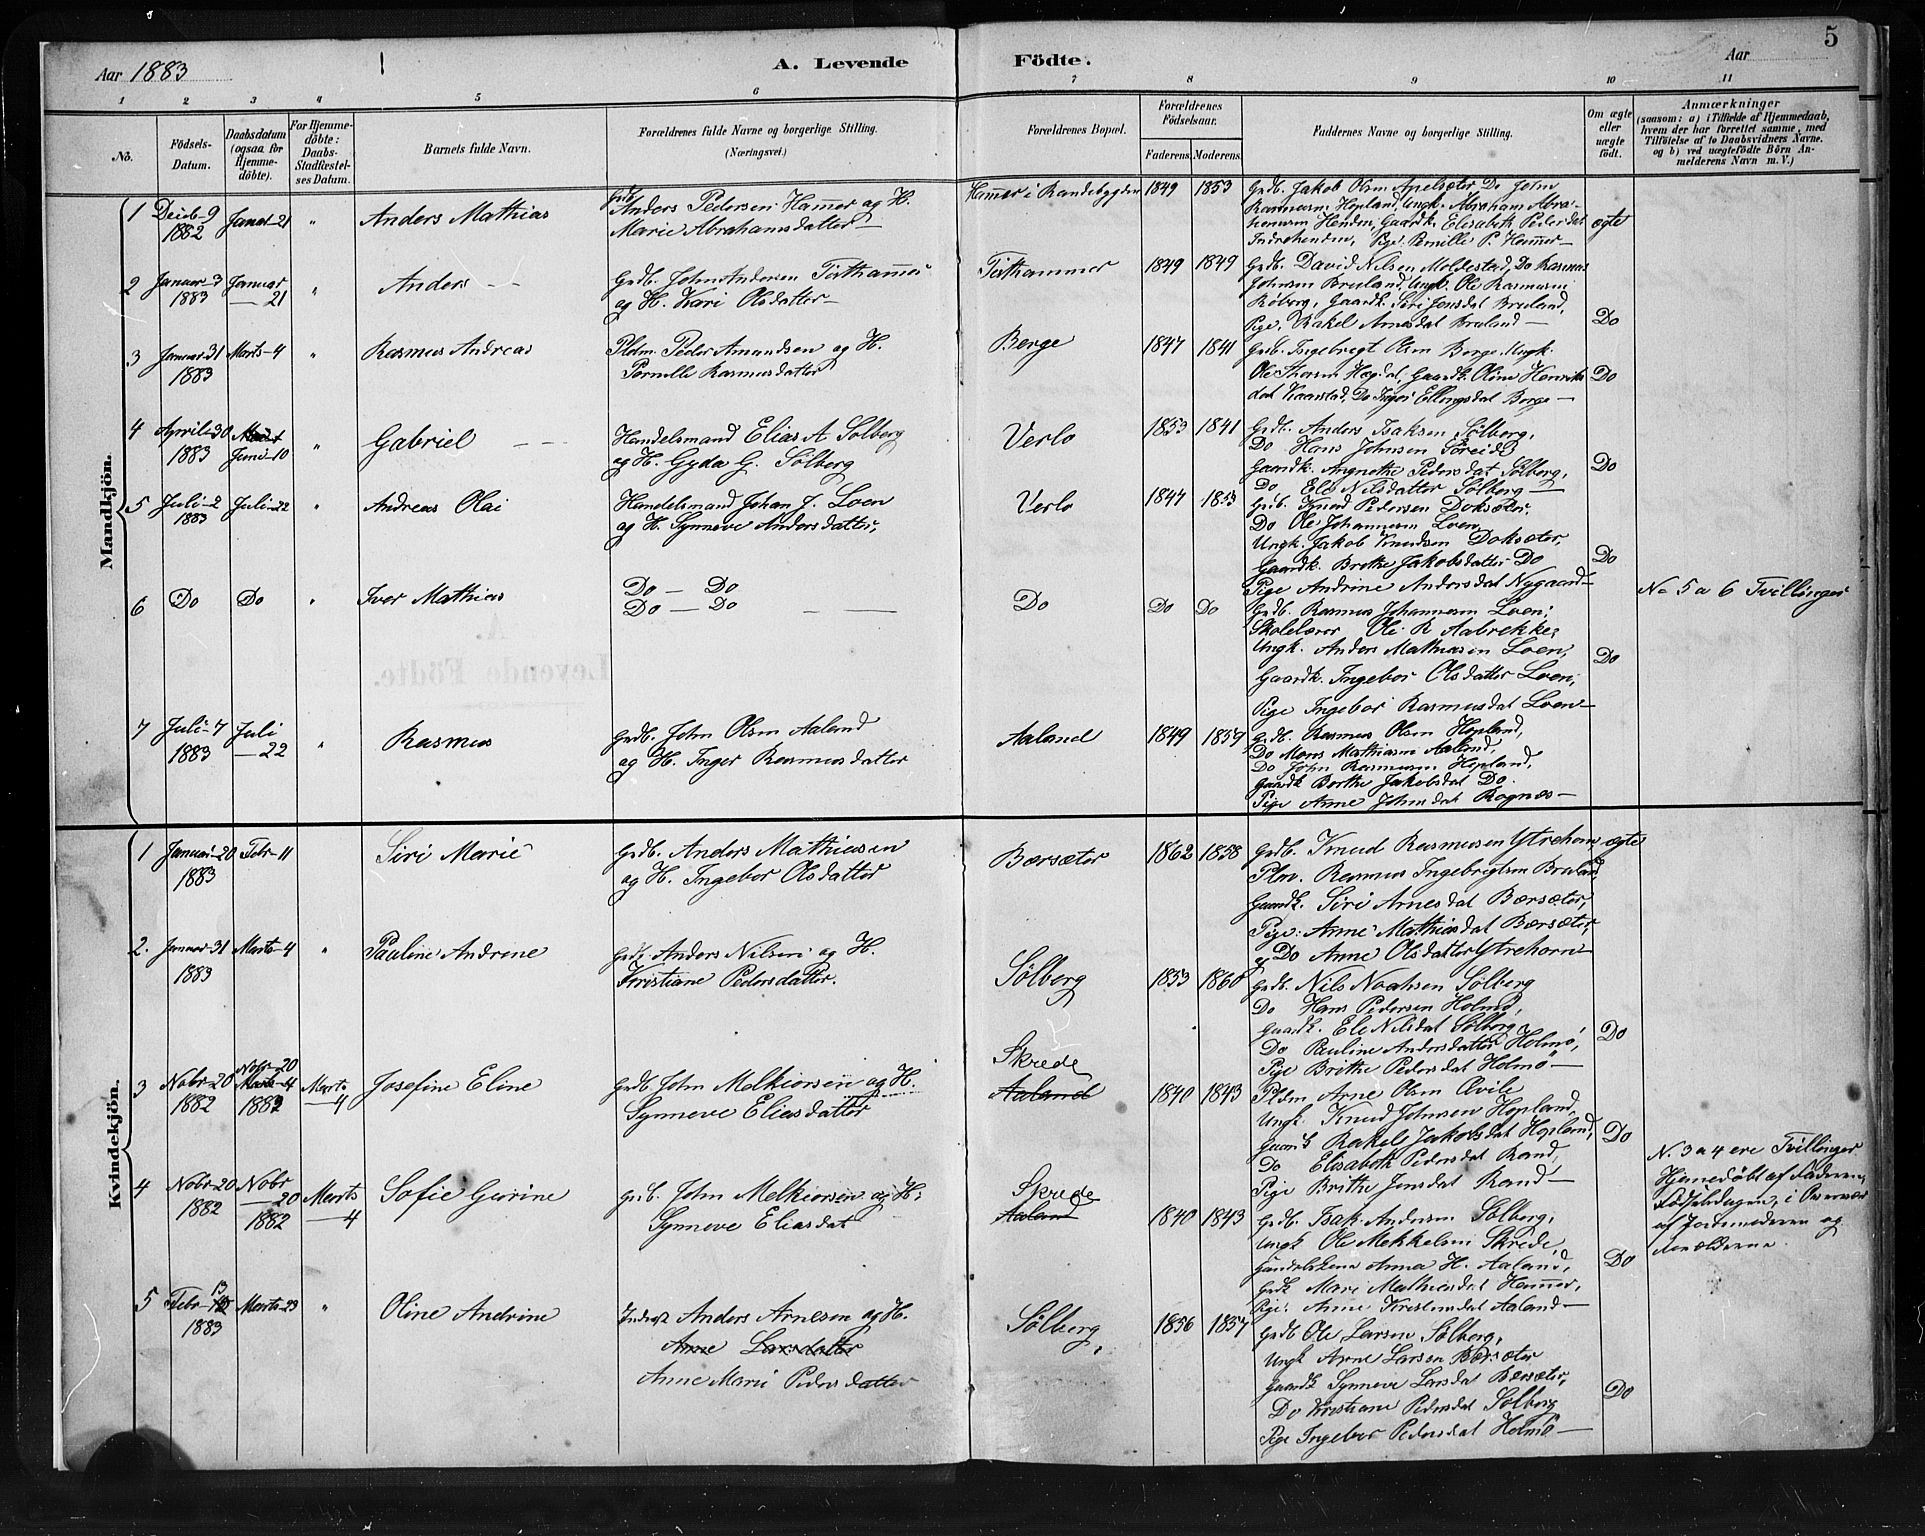 5
Aar 1883
A. Levende
Födte.
Aar
1 2 3 4 5 6 7 8 9 10 11
No.
Födsels-
Datum.
Daabsdatum
(ogsaa for
Hjemme-
döbte).
For Hjemme-
döbte:
Daabs-
Stadfæstel-
ses Datum.
Barnets fulde Navn.
Forældrenes fulde Navne og borgerlige Stilling.
(Næringsvei.)
Forældrenes Bopæl.
Forældrenes
Födselsaar.
Faderens. Moderens.
Faddernes Navne og borgerlige Stilling.
Om ægte
eller
uægte
födt.
Anmærkninger
(saasom: a) i Tilfælde af Hjemmedaab,
hvem der har forrettet samme, med
Tilföielse af to Daabsvidners Navne.
og b) ved uægtefödte Börn An-
melderens Navn m. V.)
Mandkjön.
1 Decb-9 1882 Januar-21 " Anders Mathias
Gdb. Anders Pedersen Hamer og H.
Marie Abrahamsdatter —
Hammer i Randebygden 1849 1853
Grdb. Jakob Olsen Apelsæter Do John
Rasmussen Hopland, Ungk. Abraham Abra-
hamsen Henden, Gaardk. Elisabeth Pedersdat
Indrehenden, Pige Pernille P. Hammer —
ægte
2 Januar-3 1883 Januar — 21 " Anders — —
Grdb. John Andersen Tisthammer
og H. Kari Olsdatter —
Tisthammer 1849 1849
Grdb. David Nilsen Moldestad, Do Rasmus
Johnsen Bruland, Ungk. Ole Rasmussen
Röberg, Gaardk. Siri Jensdat Bruland,
Pige, Rakel Arnesdat Bruland —
Do
3 Januar-31 1883 Marts-4 " Rasmus Andreas
Pldm. Peder Amundsen og H.
Pernille Rasmusdatter
Berge 1847 1841
Grdb. Ingebrigt Olsen Berge, Ungk.
Ole Thorsen Hægdal, Gaardk. Oline Henriks
dat Kaarstad, Do Inger Ellingsdat Berge —
Do
4 April-30 1883 Juni-10 " Gabriel — —
Handelsmand Elias A Sølberg
og H. Gyda G. Sølberg
Verlo 1853 1841
Grdb. Anders Isaksen Sølberg,
Do Hans Johnsen Söreide
Gaardk. Angnethe Pedersdat Sølberg,
Do Ele Nilsdatter Sølberg —
Do
5 Juli-2 1883 Juli-22 " Andreas Olai
Handelsmand Johan J. Loen
og H. Synneve Andersdatter,
Verlo 1847 1853
Grdb. Knud Pedersen Doksæter,
Do Ole Johannesen Loen,
Ungk. Jakob Knudsen Doksæter,
Gaardk. Brithe Jakobsdatter Do
Pige Andrine Andersdat Nygaard —
Do
6 Do Do " Iver Mathias
Do — Do
Do — Do — —
Do Do Do
Grdb. Rasmus Johannesen Loen,
Skolelærer Ole R Aabrekke,
Ungk. Anders Mathiasen Loen,
Gaardk. Ingebor Olsdatter Loen,
Pige Ingebor Rasmusdat Loen —
Do
No 5 a 6 Tvillinger
7 Juli-7 1883 Juli — 22 " Rasmus
Grdb. John Olsen Aaland
og H. Inger Rasmusdatter
Aaland 1849 1859
Grdb. Rasmus Olsen Hopland,
Do Mons Mathiasen Aaland,
Do John Rasmussen Hopland,
Gaardk Borthe Jakobsdat Do.
Pige Anne Johnsdat Rognes —
Kvindekjön.
1 Januar-20 1883 Febr-11 Siri Marie
Grdb. Anders Mathiasen
og H. Ingebor Olsdatter
Bærsæter 1862 1858
Grdb. Knud Rasmussen Ytrehorn,
Plm. Rasmus Ingebrigtsen Bruland,
Gaardk. Siri Arnesdat Bærsæter,
Pige, Anne Mathiasdat Bærsæter,
og Do Anne Olsdatter Ytrehorn —
ægte
2. Januar-31 1883 Marts-4 " Pauline Andrine
Grdb. Anders Nilsen og H.
Kristiane Pedersdatter.
Sølberg 1853 1860
Grdb. Nils Noahsen Sølberg
Do Hans Pedersen Holmö,
Gaardk. Ele Nilsdat Sølberg,
Do Pauline Andersdatter Holmö,
Pige Brithe Pedersdat Holmö —
Do
3 Nobr-20 1882 Nobr-20 Marts-4 1882 Marts — 4 Josefine Eline
Grdb. John Melkiorsen og H.
Synneve Eliasdatter
Skrede
Aaland 1840 1843
Pldm Arne Olsen Qvile
Ungk. Knud Johnsen Hopland,
Gaardk Rakel Jakobsdat Hopland,
Do Elisabeth Pedersdat Rand,
Pige Brithe Jensdat Rand —
Do
4 Nobr-20 1882 Nobr — 20 1882 Marts — 4 Sofie Gurine
Grdb. John Melkiorsen og H.
Synneve Eliasdat
Skrede
Aaland 1840 1843
Grdb. Isak Andersen Sølberg,
Ungk Ole Mekkelsen Skrede,
Handelskone Anna H. Aaland,
Grdk Mari Mathiasdat Hammer,
Pige Anne Kristensdat Aaland —
Do
N. 3 a 4 ere Tvillinger
Hjemedöbt af Faderen,
Födselsdagen, i Overvær
af Jordemoderen og
Forældrerne.
5 Febr-13 1883 Marts-23 " Oline Andrine
Inderst Anders Arnesen og H.
Anne Larsdatter
Anne Marie Pedersdatter
Sølberg, 1856 1857
Grdb Ole Larsen Sølberg,
Ungk Arne Larsen Bærsæter
Gaardk Synneve Larsdat Bærsæter,
Do Kristiane Pedersdat Sølberg
Pige Ingebor Pedersdat Holmö —
Do